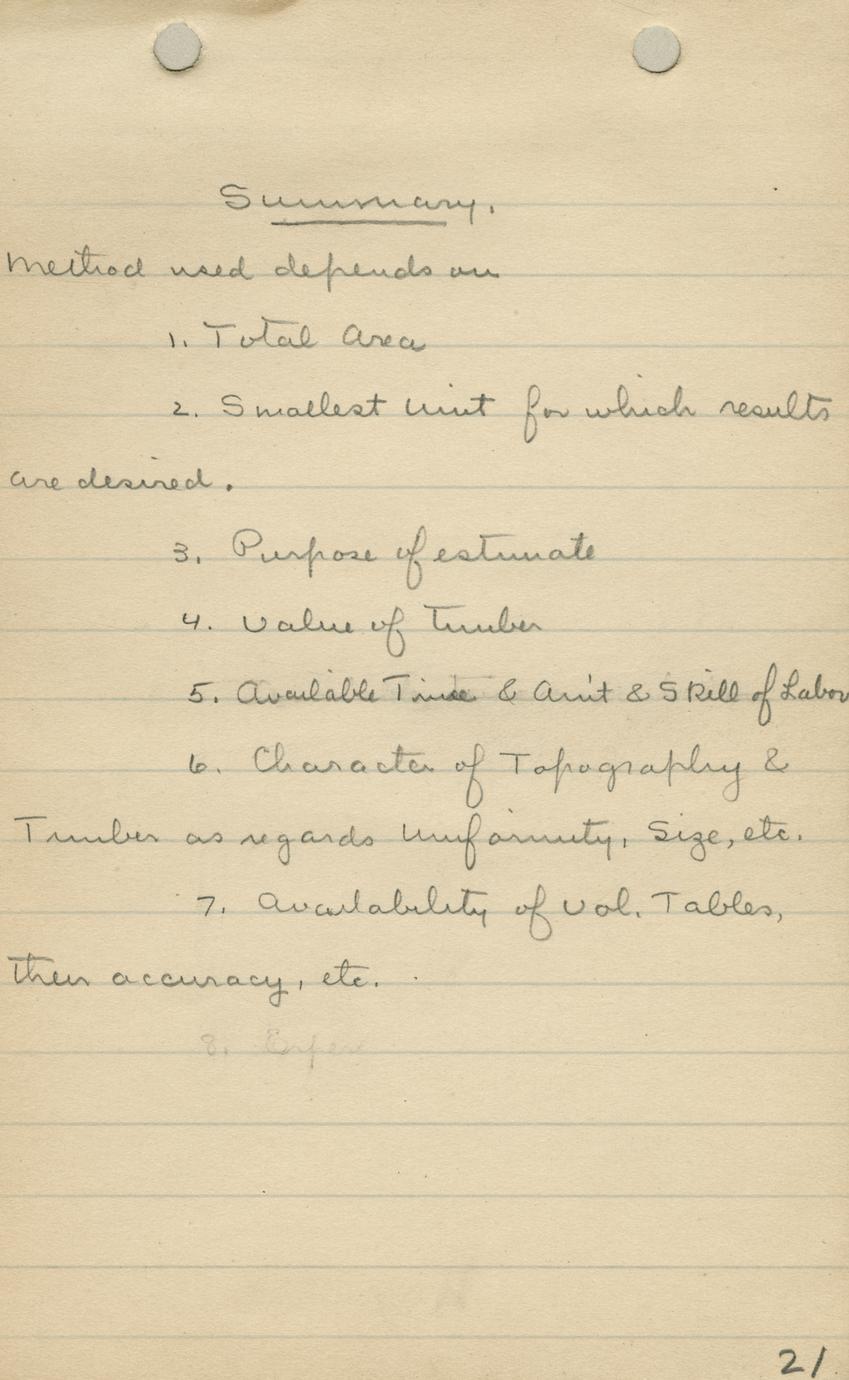 Summary.
Method used depends on
1. Total Area
2. Smallest Unit for which results
are desired.
3. Purpose of estimate
4. Value of Timber
5. Available Time & Am't & Skill of Labor
6. Character of Topography &
Timber as regards Uniformity, Size, etc.
7. Availability of Vol. Tables,
their accuracy, etc.
8.
21